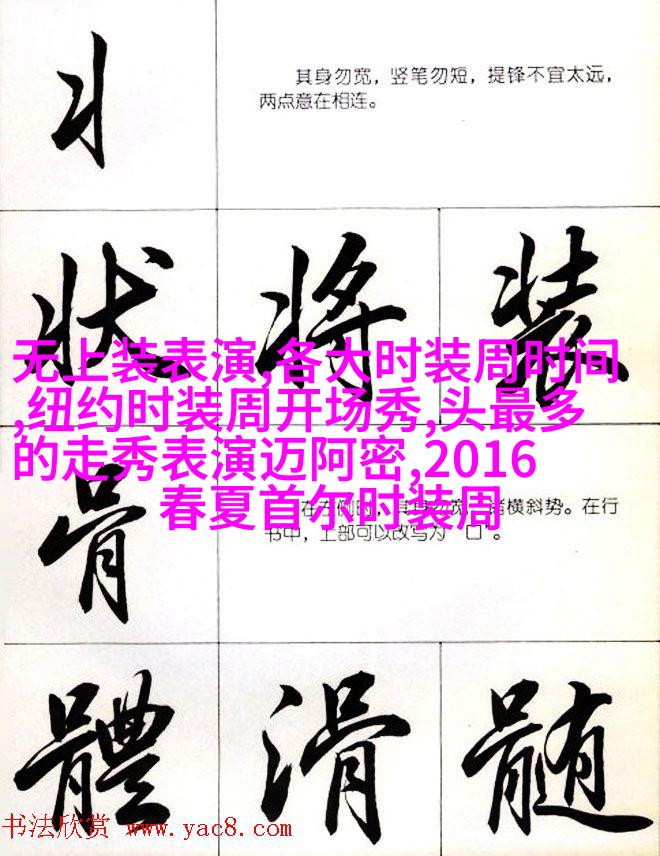 丬
其身勿宽，竖笔勿短，提锋不宜太远，
两点意在相连。
状 将 装
无上装表演,各大时装周时间
,纽约时装周开场秀,头最多
的走秀表演迈阿密,2016
春夏首尔时装周
骨
在左侧时，其身勿宽，诸横斜势。在行
书中，上部可以改写为“口”。
體 滑 髓
书法欣赏 www.yac8.com